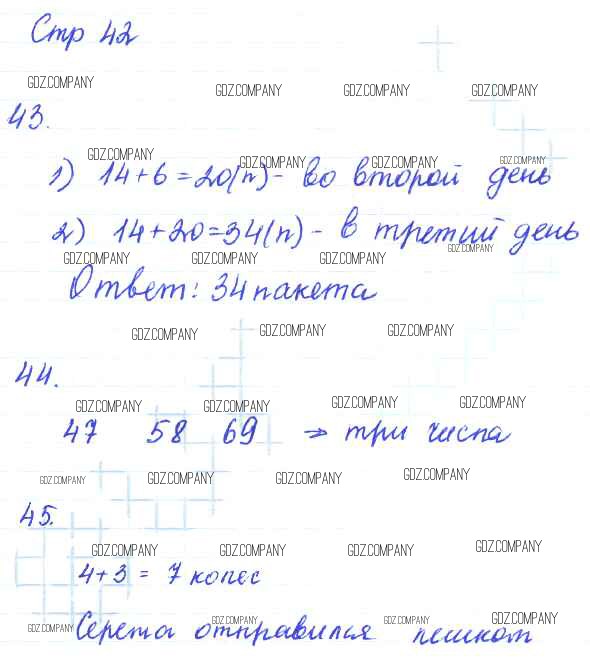 Стр 42
GDZ.COMPANY GDZ.COMPANY GDZ.COMPANY GDZ.COMPANY
43.
GDZ.COMPANY GDZ.COMPANY GDZ.COMPANY GDZ.COMPANY
1) 14+6=20(п)- во второй день
2) 14+20=34(п)- в третий день
GDZ.COMPANY GDZ.COMPANY GDZ.COMPANY GDZ.COMPANY
Ответ: 34 пакета
GDZ.COMPANY GDZ.COMPANY GDZ.COMPANY
44.
GDZ.COMPANY GDZ.COMPANY GDZ.COMPANY GDZ.COMPANY
47 58 69 → три числа
GDZ.COMPANY GDZ.COMPANY GDZ.COMPANY GDZ.COMPANY
45.
GDZ.COMPANY GDZ.COMPANY GDZ.COMPANY GDZ.COMPANY
4+3 = 7 колес
GDZ.COMPANY GDZ.COMPANY GDZ.COMPANY GDZ.COMPANY GDZ.COMPANY
Сережа отправился пешком